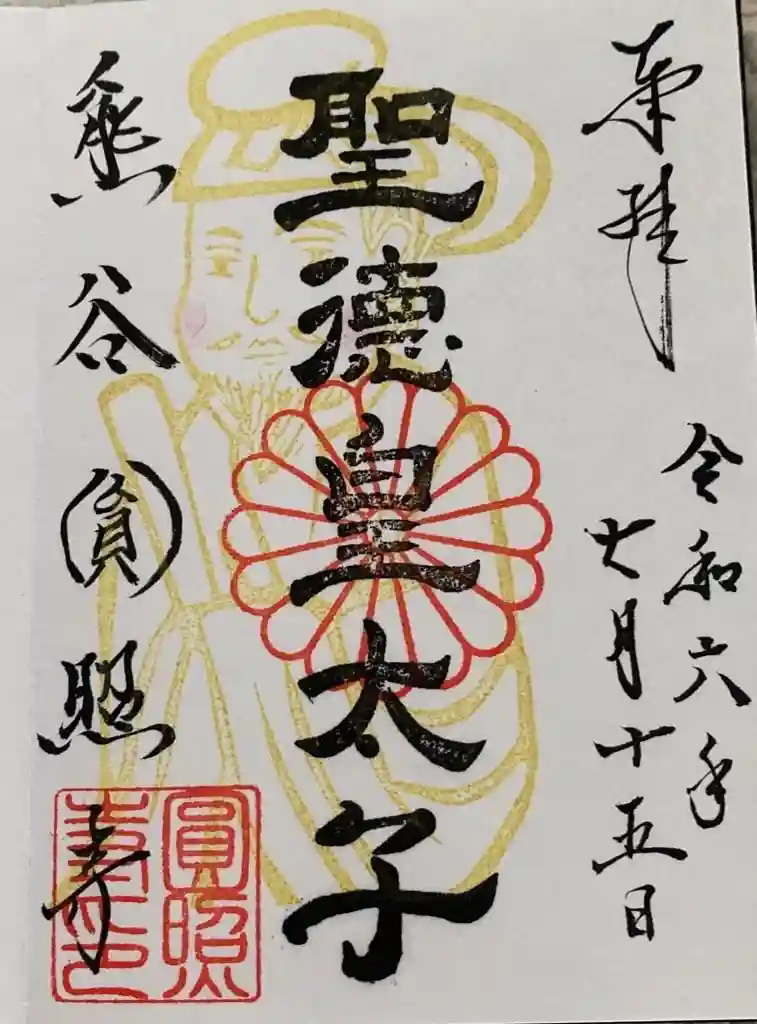 奉拝
令和六年
七月十五日
聖徳皇太子
熊谷圓照寺
圓照
寺印